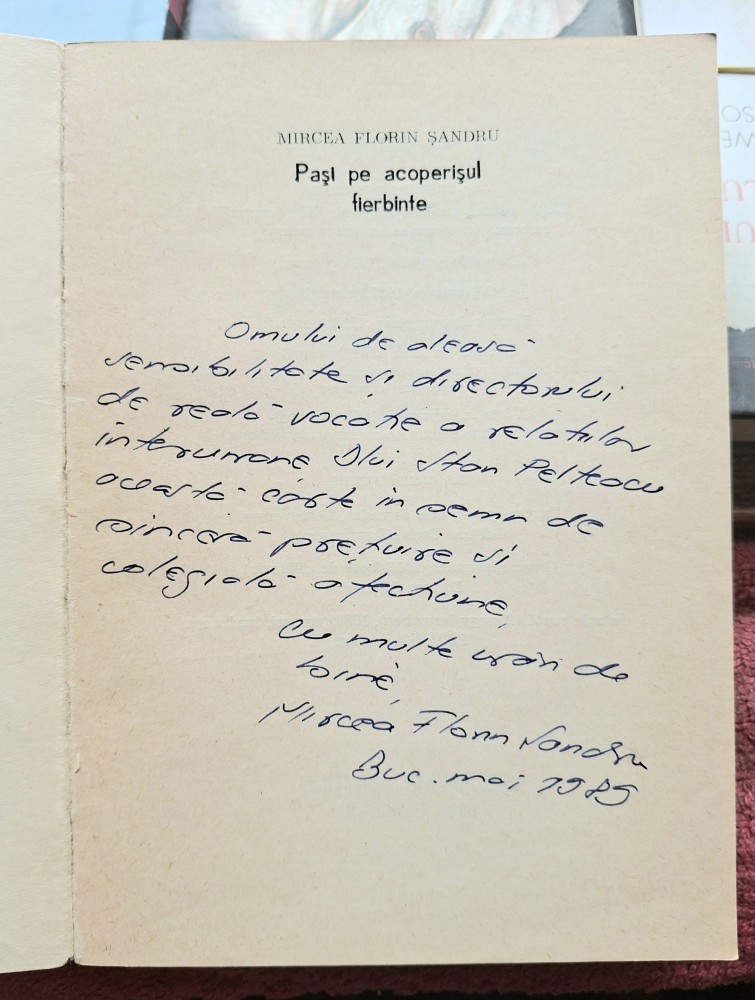 MIRCEA FLORIN ȘANDRU
Pași pe acoperișul
fierbinte
Omului de aleasă
sensibilitate și directorului
de reală vocație a relațiilor
interumane, Dlui Stan Pelteacu
această carte în semn de
sinceră prețuire și
colegială afecțiune,
cu multe urări de
bine,
Mircea Florin Sandru
Buc. mai 1989